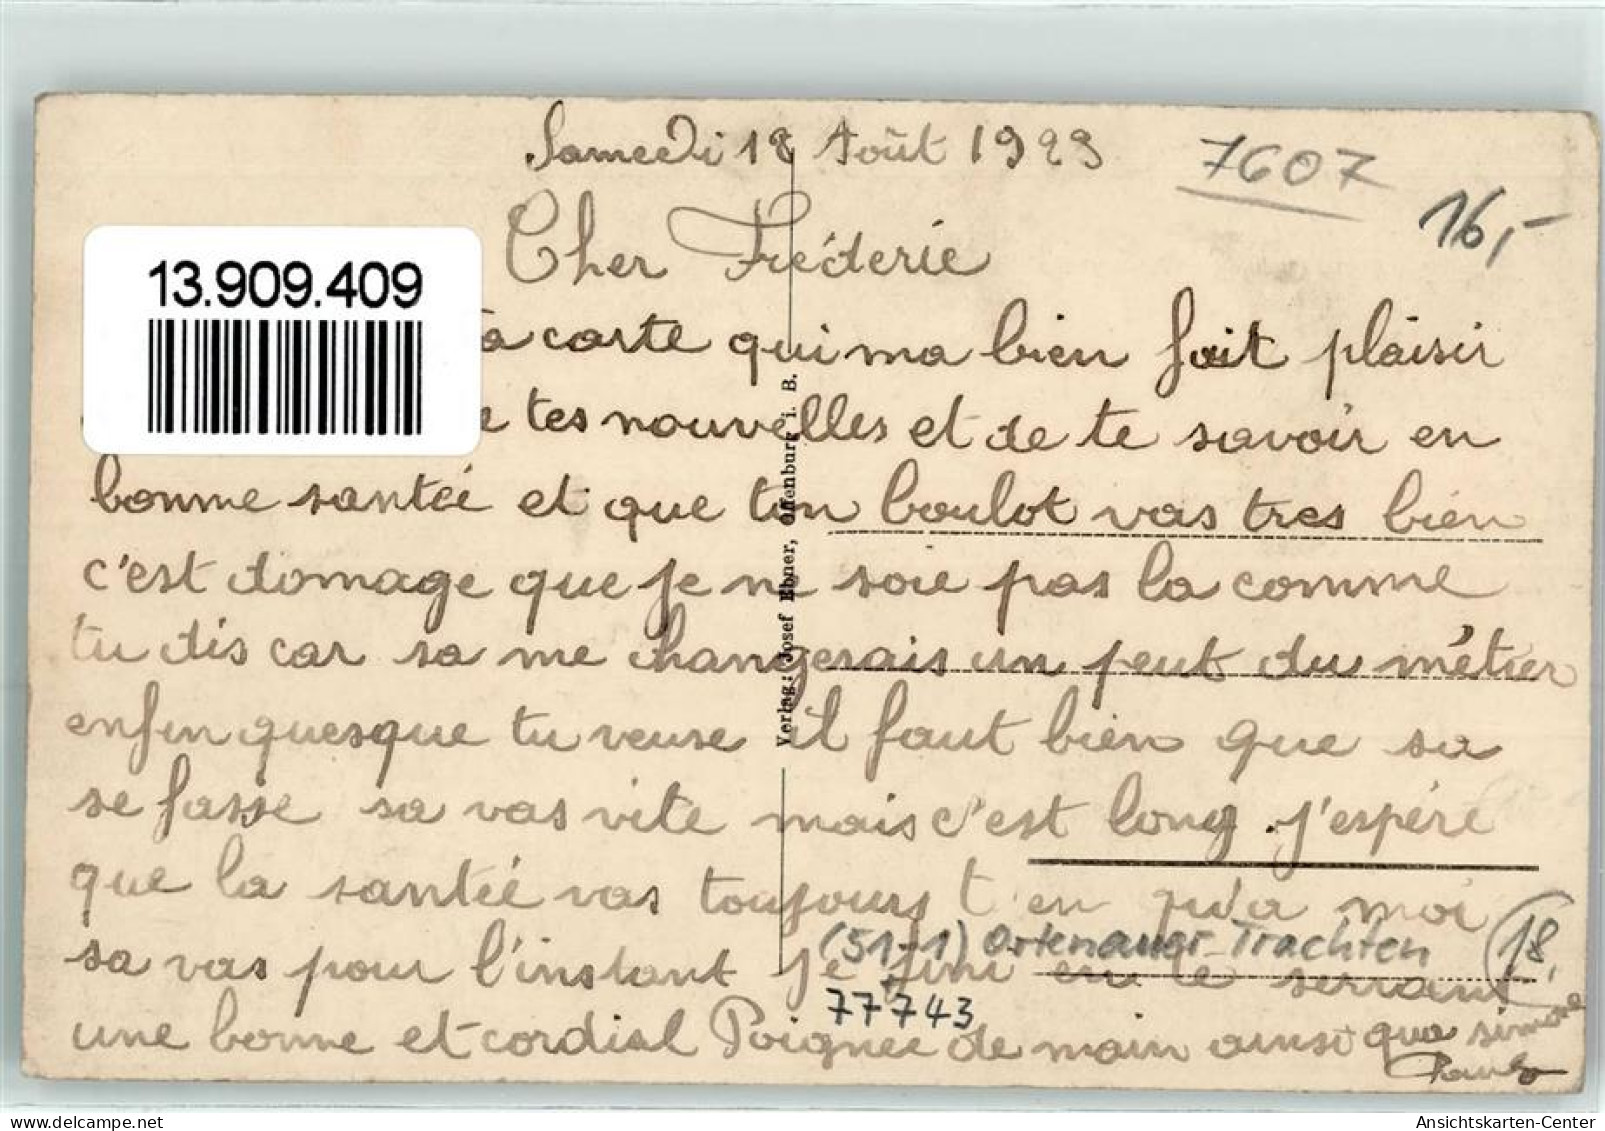 Samedi 18 Août 1923
7607
16,-
Cher Fréderic
13.909.409
ta carte qui ma bien fait plaisir
tes nouvelles et de te savoir en
bonne santée et que ton boulot vas tres bien
c'est domage que je ne soie pas la comme
tu dis car sa me changerais un peut du métier
enfin quesque tu veuse il faut bien que sa
se fasse sa vas vite mais c'est long. j'espére
que la santée vas toujours t en qu'a moi
sa vas pour l'instant je fini en te serrant
une bonne et cordial Poignee de main ainsi qua simone
(51-1) Ortenauer Trachten
18.
77743
Verlag: Josef Ebner, Offenburg i. B.
www.delcampe.net
Ansichtskarten-Center